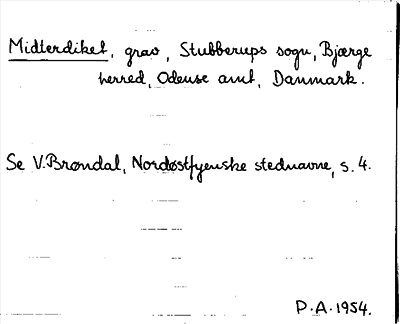 Midterdiket, grav, Stubberups sogn, Bjærge
herred, Odense amt, Danmark.
Se V. Brøndal, Nordøstfyenske stednavne, s. 4.
P.A. 1954.